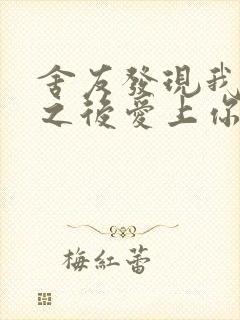 舍友發現我
之後愛上你
梅紅蕾